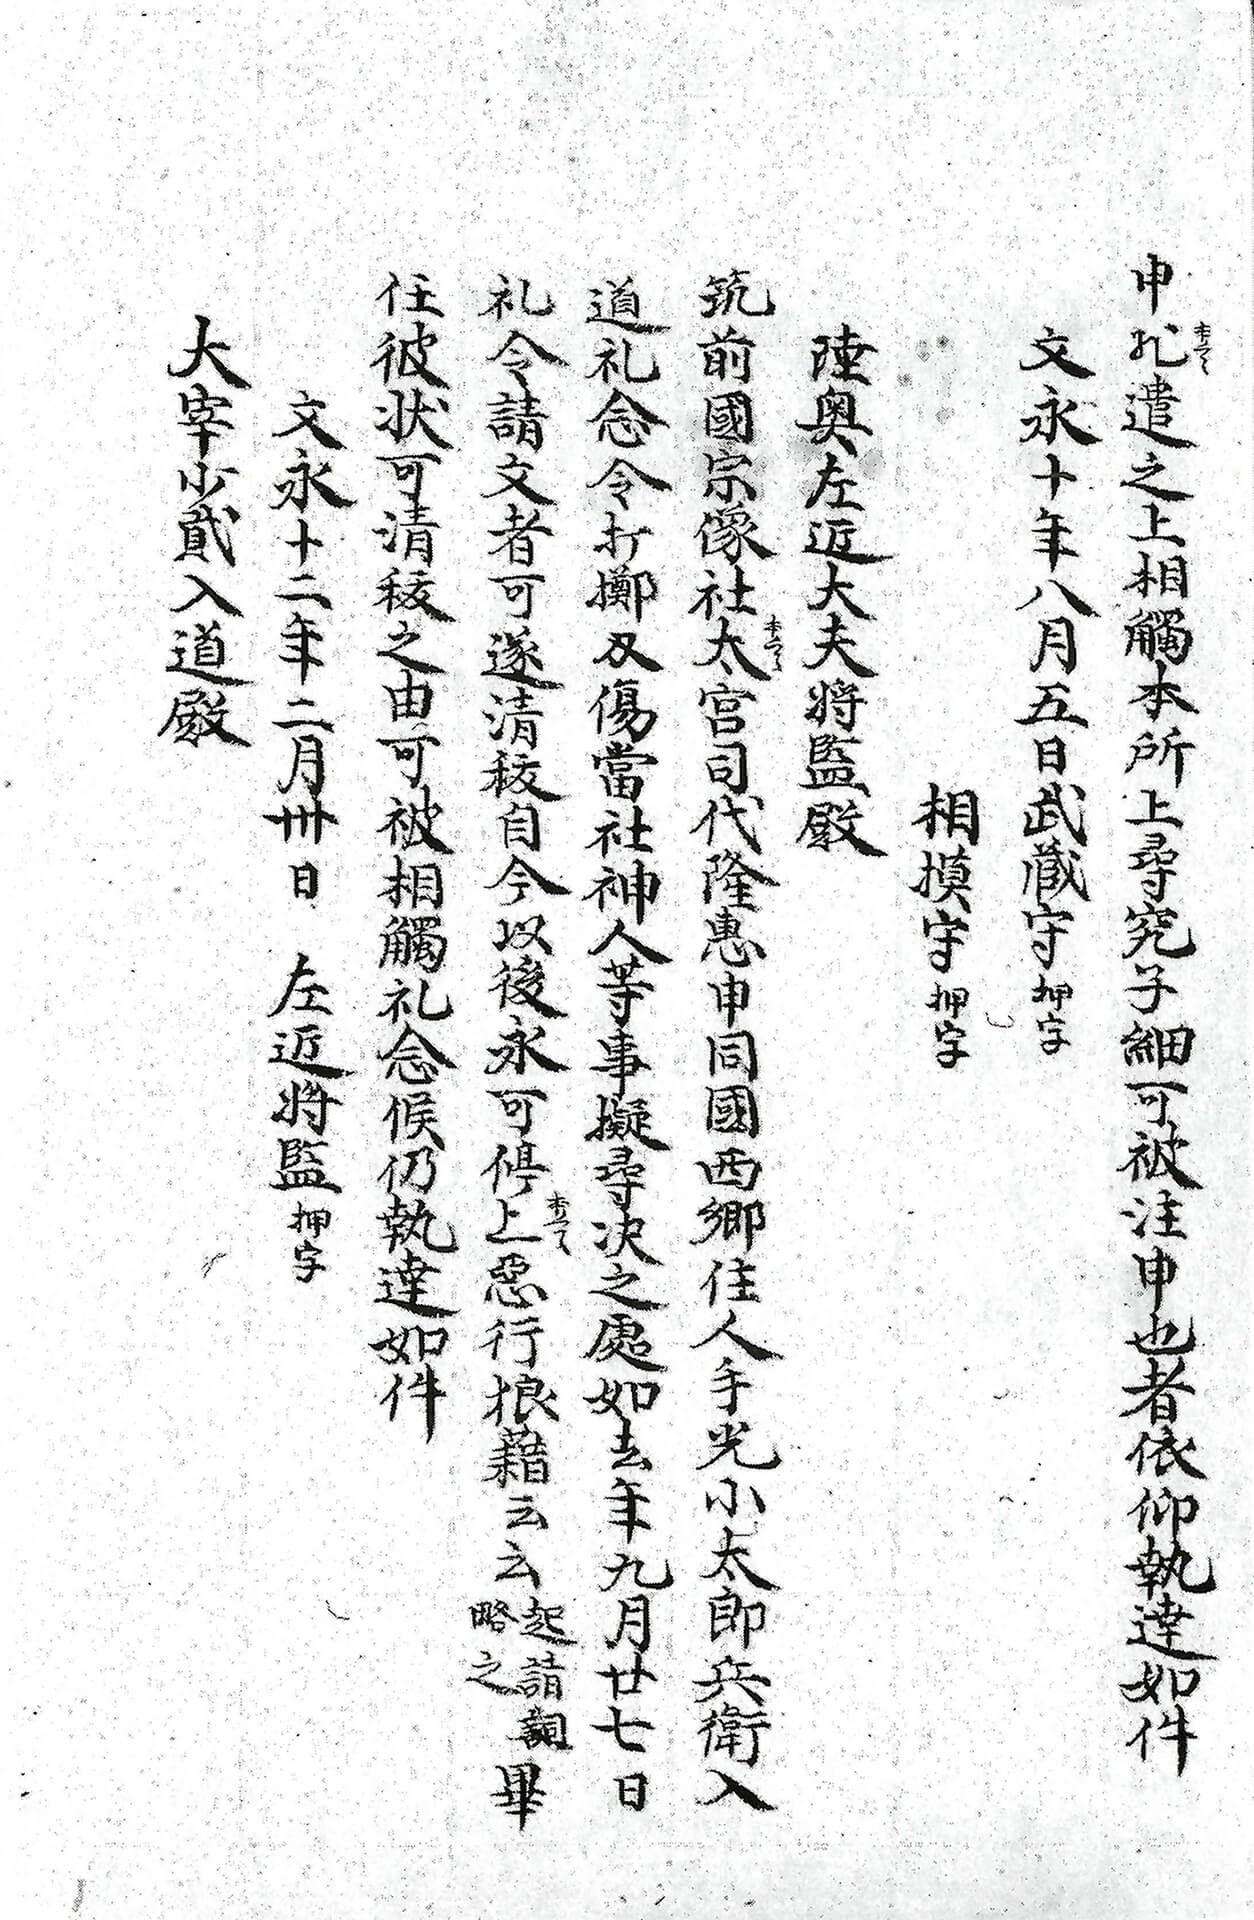 申状遣之上相觸本所上尋究子細可被注申也者依仰執達如件
文永十年八月五日武藏守押字
相摸守押字
陸奥左近大夫将監殿
筑前國宗像社太宮司代隆惠申同國西郷住人手光小太郎兵衛入
道礼念令打擲刄傷當社神人等事擬尋决之處如去年九月廿七日
礼令請文者可遂清祓自今以後永可停上惡行狼藉云云起請詞略之畢
任彼状可清祓之由可被相觸礼念候仍執達如件
文永十二年二月卅日 左近将監押字
大宰少貳入道殿